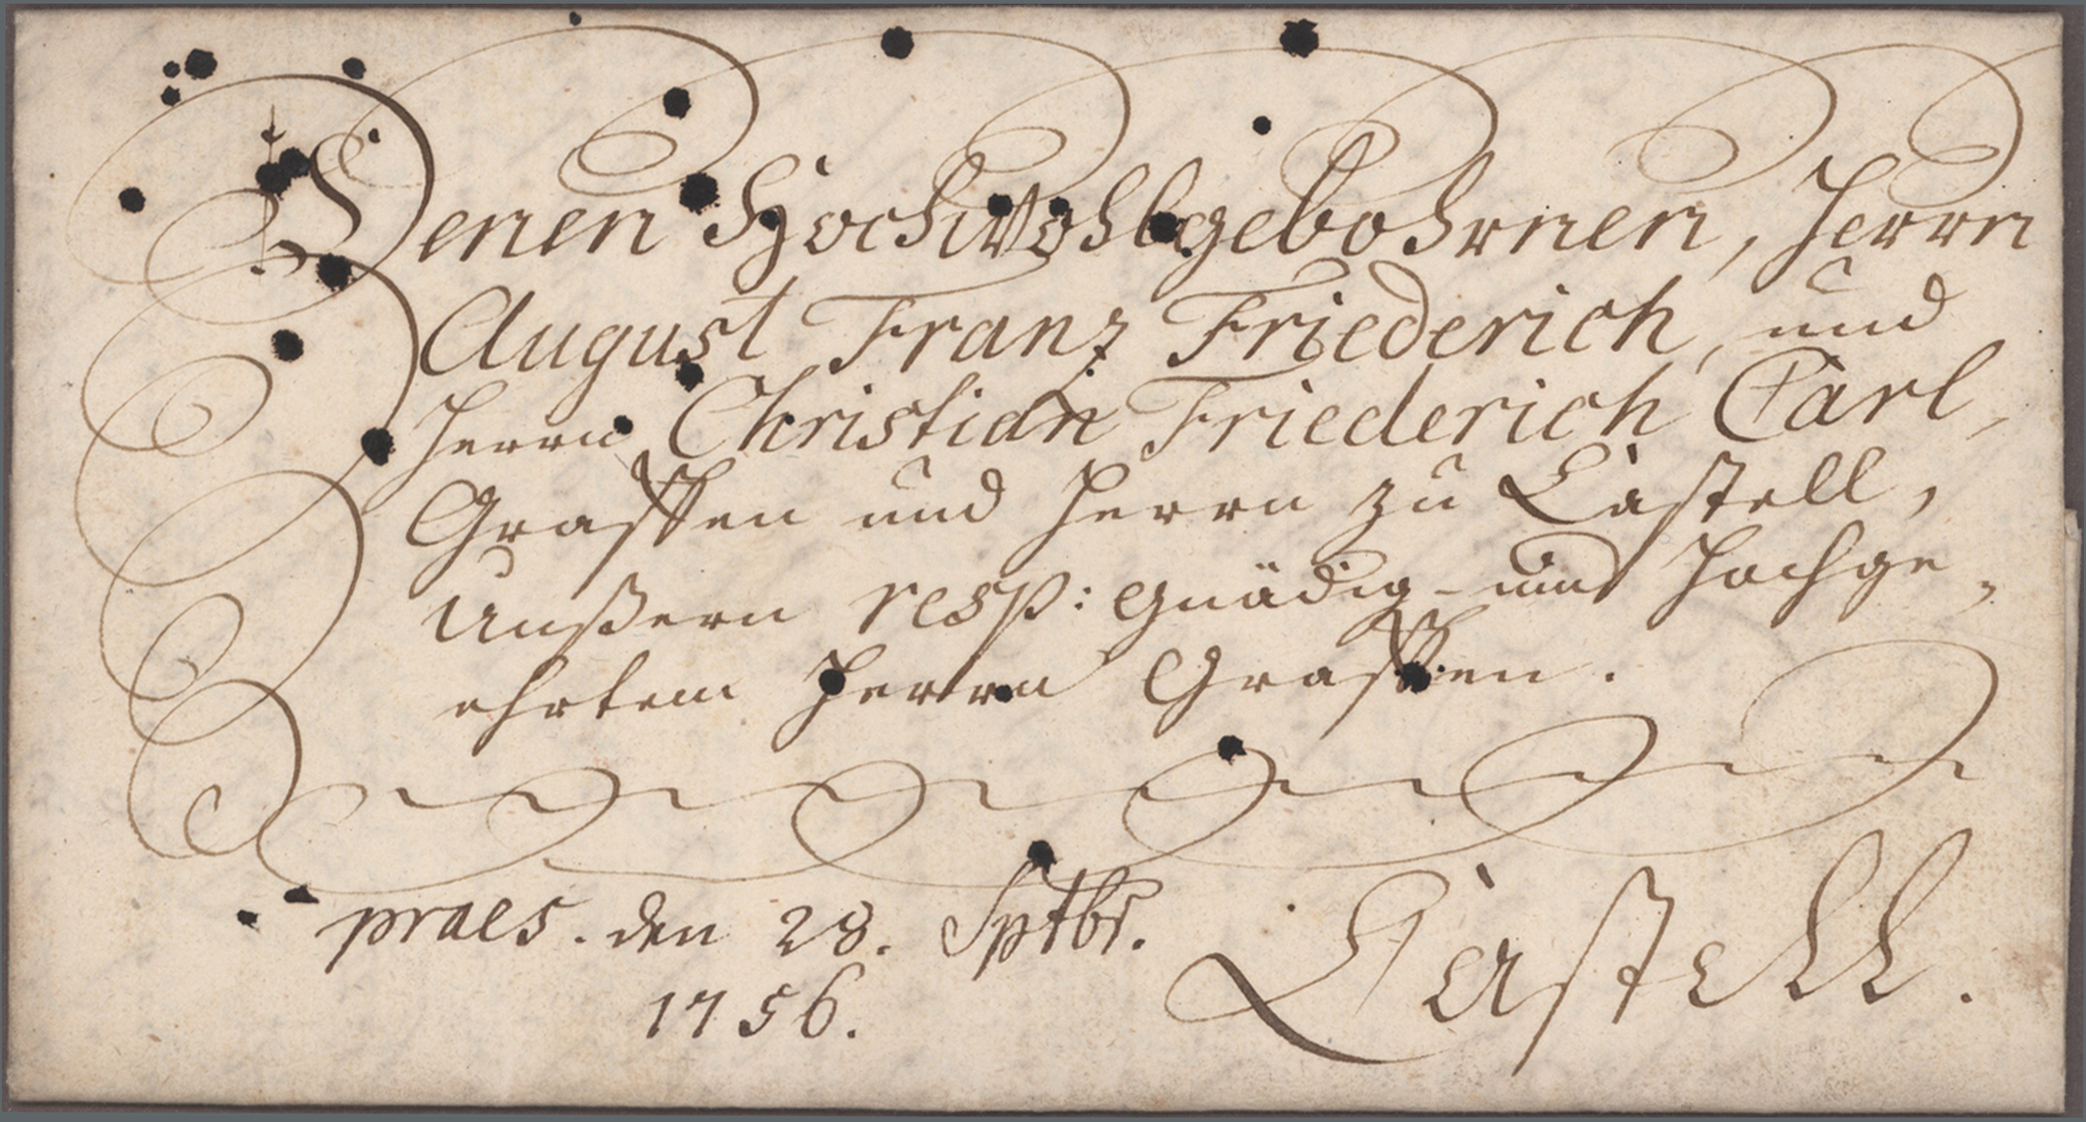 Denen Hochwohlgebohrnen, Herrn
August Franz Friederich, und
Herrn Christian Friederich Carl,
Graffen und Herrn zu Castell,
Unßern resp: gnädig- und Hochge-
ehrtem Herrn Graffen.
praes. den 28. Sptbr.
1756.
Castell.